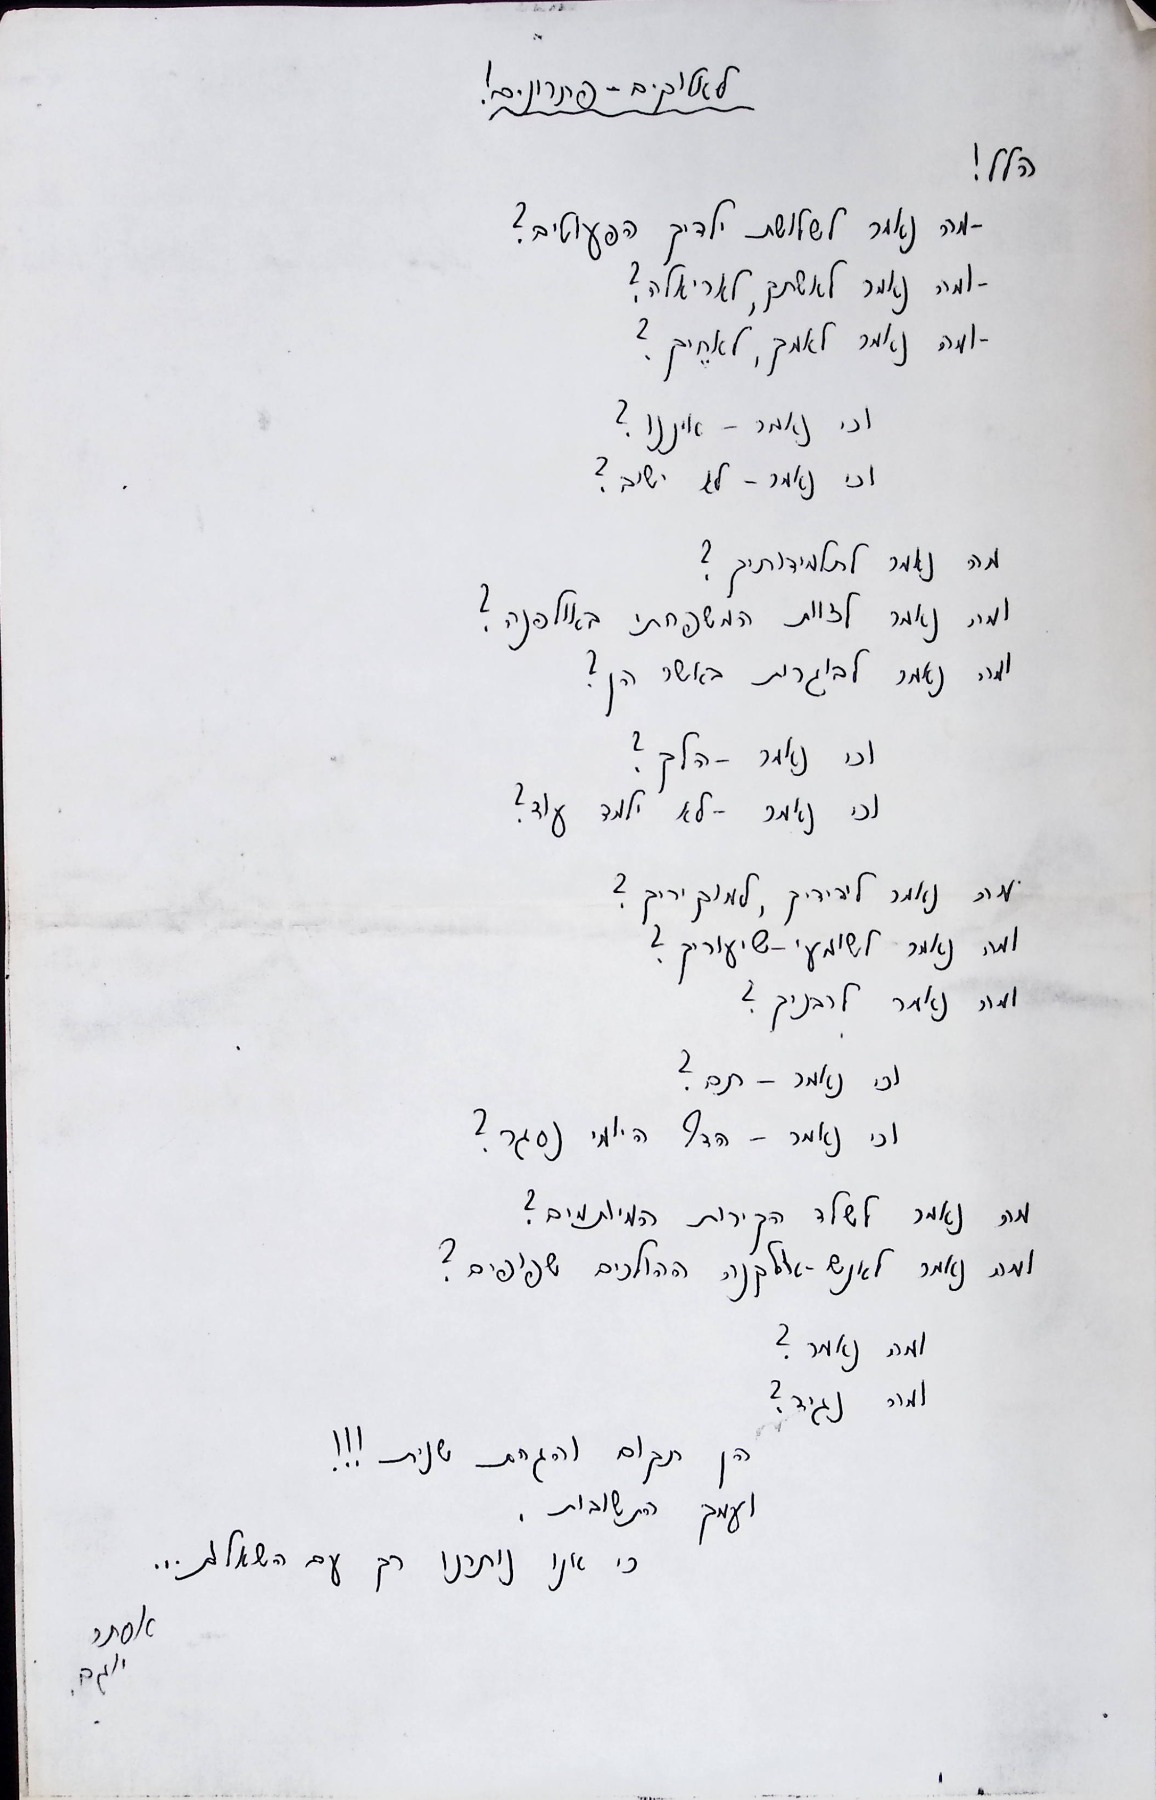 לאלוקים - פתרונים!
הלל!
-מה נאמר לשלושת ילדיך הפעוטים?
-ומה נאמר לאשתך, לאריאלה?
-ומה נאמר לאמך, לאחֶיך?
וכי נאמר - איננו?
וכי נאמר - לא ישוב?
מה נאמר לתלמידותיך?
ומה נאמר לצוות המשפחתי באולפנה?
ומה נאמר לבוגרות באשר הן?
וכי נאמר - הלך?
וכי נאמר - לא ילמד עוד?
מה נאמר לידידיך, למוקיריך?
ומה נאמר לשומעי-שיעוריך?
ומה נאמר לרבניך?
וכי נאמר - תם?
וכי נאמר - הדף היומי נסגר?
מה נאמר לשלד הקירות המיותמים?
ומה נאמר לאנשי-אלקנה ההולכים שפופים?
ומה נאמר?
ומה נגיד?
הן תקום והגחת שנית!!!
ועמך התשובות.
כי אנו נותרנו רק עם השאלות...
אסתר